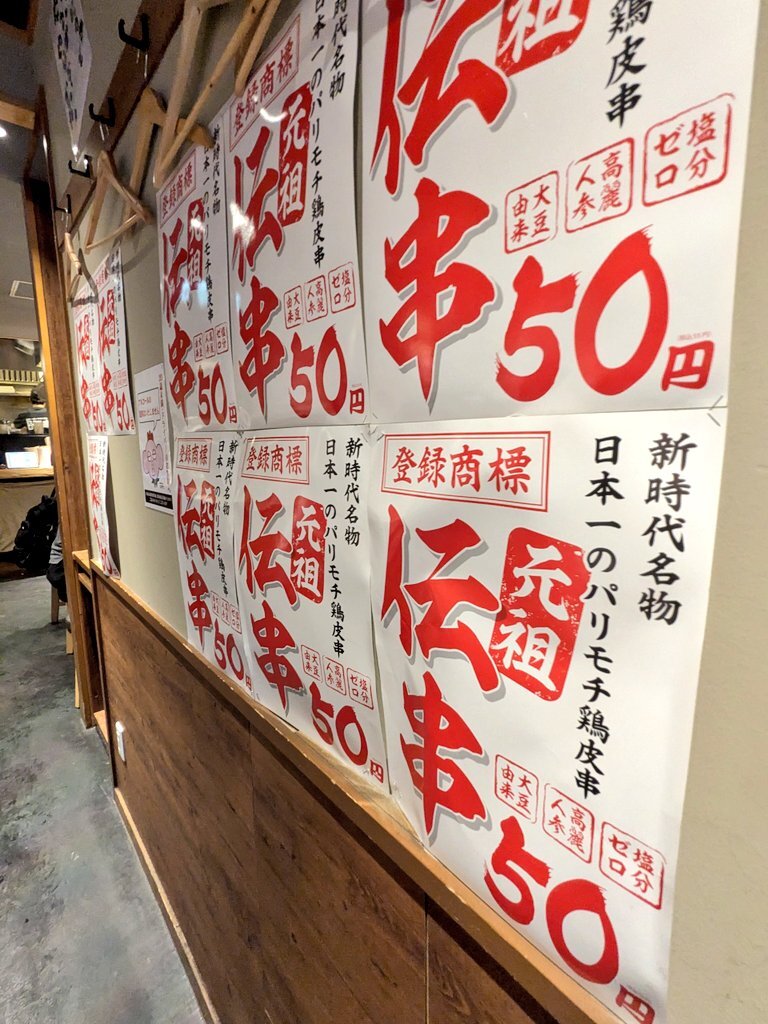 登録商標
元祖
伝串
新時代名物
日本一のパリモチ鶏皮串
大豆由来
高麗人参
塩分ゼロ
50円
登録商標
元祖
伝串
新時代名物
日本一のパリモチ鶏皮串
大豆由来
高麗人参
塩分ゼロ
50円
祖
伝串
鶏皮串
大豆由来
高麗人参
塩分ゼロ
50円
登録商標
元祖
伝串
新時代名物
日本一のパリモチ鶏皮串
大豆由来
高麗人参
塩分ゼロ
50円
登録商標
元祖
伝串
新時代名物
日本一のパリモチ鶏皮串
大豆由来
高麗人参
塩分ゼロ
50円
登録商標
元祖
伝串
新時代名物
日本一のパリモチ鶏皮串
大豆由来
高麗人参
塩分ゼロ
50円